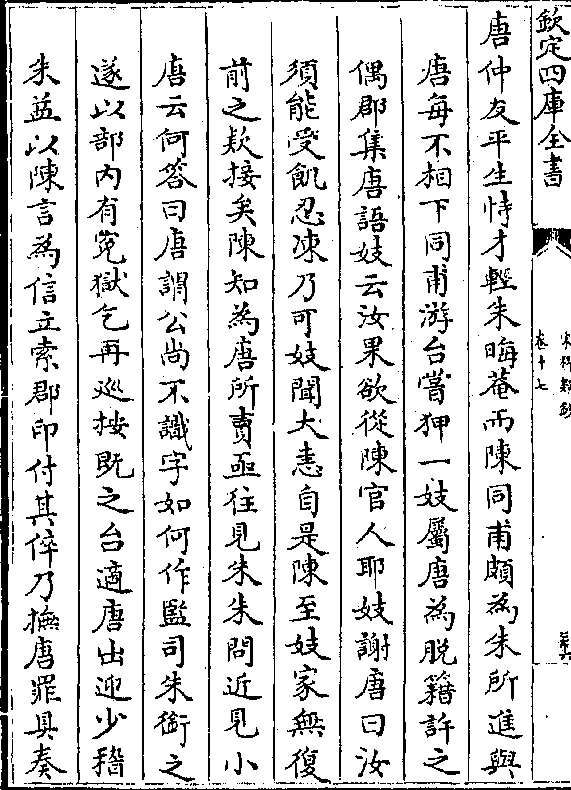 欽定四庫全書
宋稗類鈔
卷十七
唐仲友平生恃才輕朱晦菴而陳同甫頗為朱所進與
唐每不相下同甫游台嘗狎一妓屬唐為脫籍許之
偶郡集唐語妓云汝果欲從陳官人耶妓謝唐曰汝
須能受飢忍凍乃可妓聞大恚自是陳至妓家無復
前之款接矣陳知為唐所賣亟往見朱朱問近見小
唐云何答曰唐謂公尚不識字如何作監司朱銜之
遂以部內有冤獄乞再巡按既之台適唐出迎少稽
朱益以陳言為信立索郡印付其倅乃摭唐罪具奏